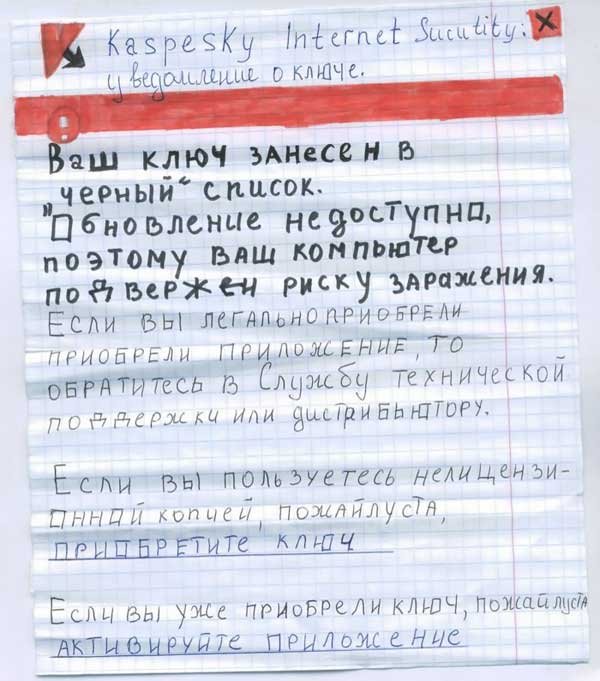 Kaspesky Internet Sucutity:
уведомление о ключе.
Ваш ключ занесен в
"черный" список.
Обновление недоступно,
поэтому ваш компьютер
подвержен риску заражения.
Если вы легально приобрели
приобрели приложение, то
обратитесь в Службу технической
поддержки или дистрибьютору.
Если вы пользуетесь нелицензи-
онной копией, пожайлуста,
приобретите ключ
Если вы уже приобрели ключ, пожайлуста
активируйте приложение